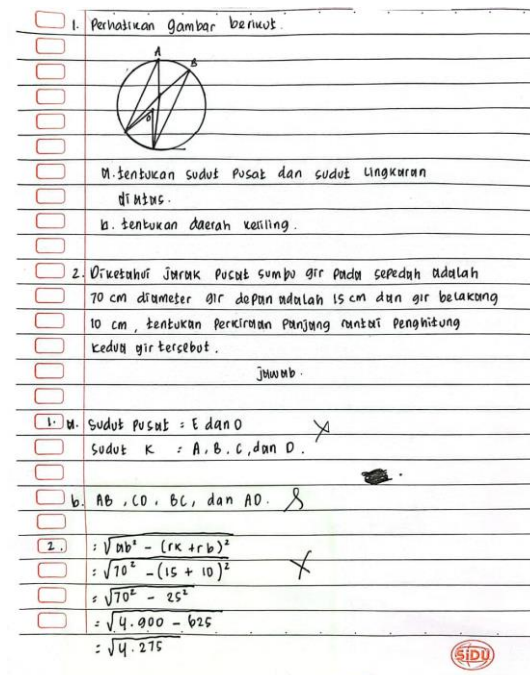 1. Perhatikan gambar berikut.
A
B
O
a. tentukan sudut pusat dan sudut Lingkaran
diatas.
b. tentukan daerah keliling.
2. Diketahui jarak pusat sumbu gir pada sepedah adalah
70 cm diameter gir depan adalah 15 cm dan gir belakang
10 cm, tentukan perkiraan panjang rantai penghitung
kedua gir tersebut.
jawab.
1. a. Sudut pusat : E dan O
Sudut K : A, B, C, dan D.
b. AB, CD, BC, dan AD.
2. = √ab² - (rk + rb)²
= √70² - (15 + 10)²
= √70² - 25²
= √4.900 - 625
= √4.275
SiDU